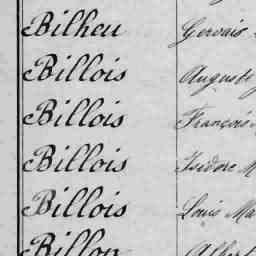 Bilheu Gervais
Billois Auguste
Billois François
Billois Isidore M
Billois Louis Ma
Billon Albert